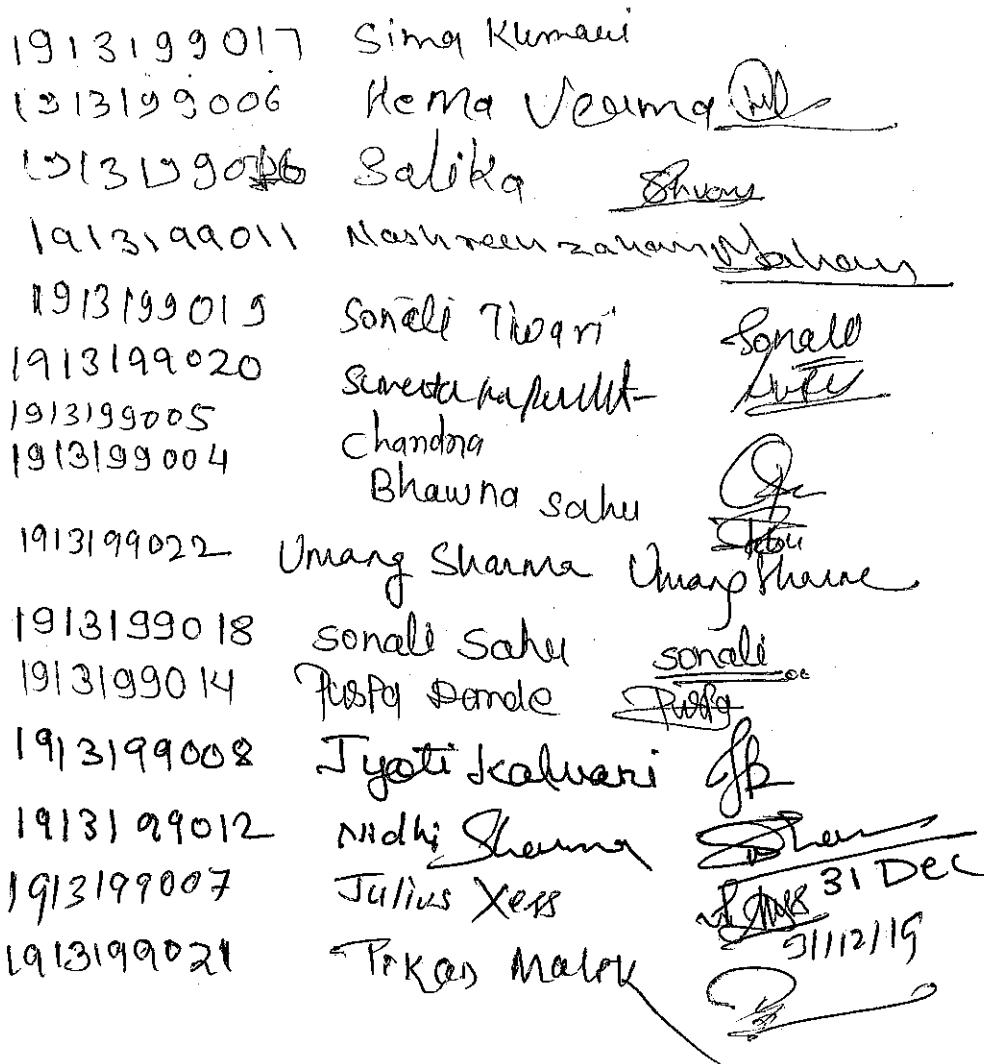 1913199017 Sima Kumari
1913199006 Hema Verma
19131990 Salika
1913199011 Nashreen zahan
1913199019 Sonali Tiwari Sonali
1913199020
1913199005 Chandra
1913199004 Bhawna Sahu
1913199022 Umang Sharma Umang Sharma
1913199018 Sonali Sahu sonali
1913199014 Puspa Puspa
1913199008 Jyoti
1913199012 Nidhi Sharma
31 Dec
1913199007 Julius Xess
31/12/19
1913199021